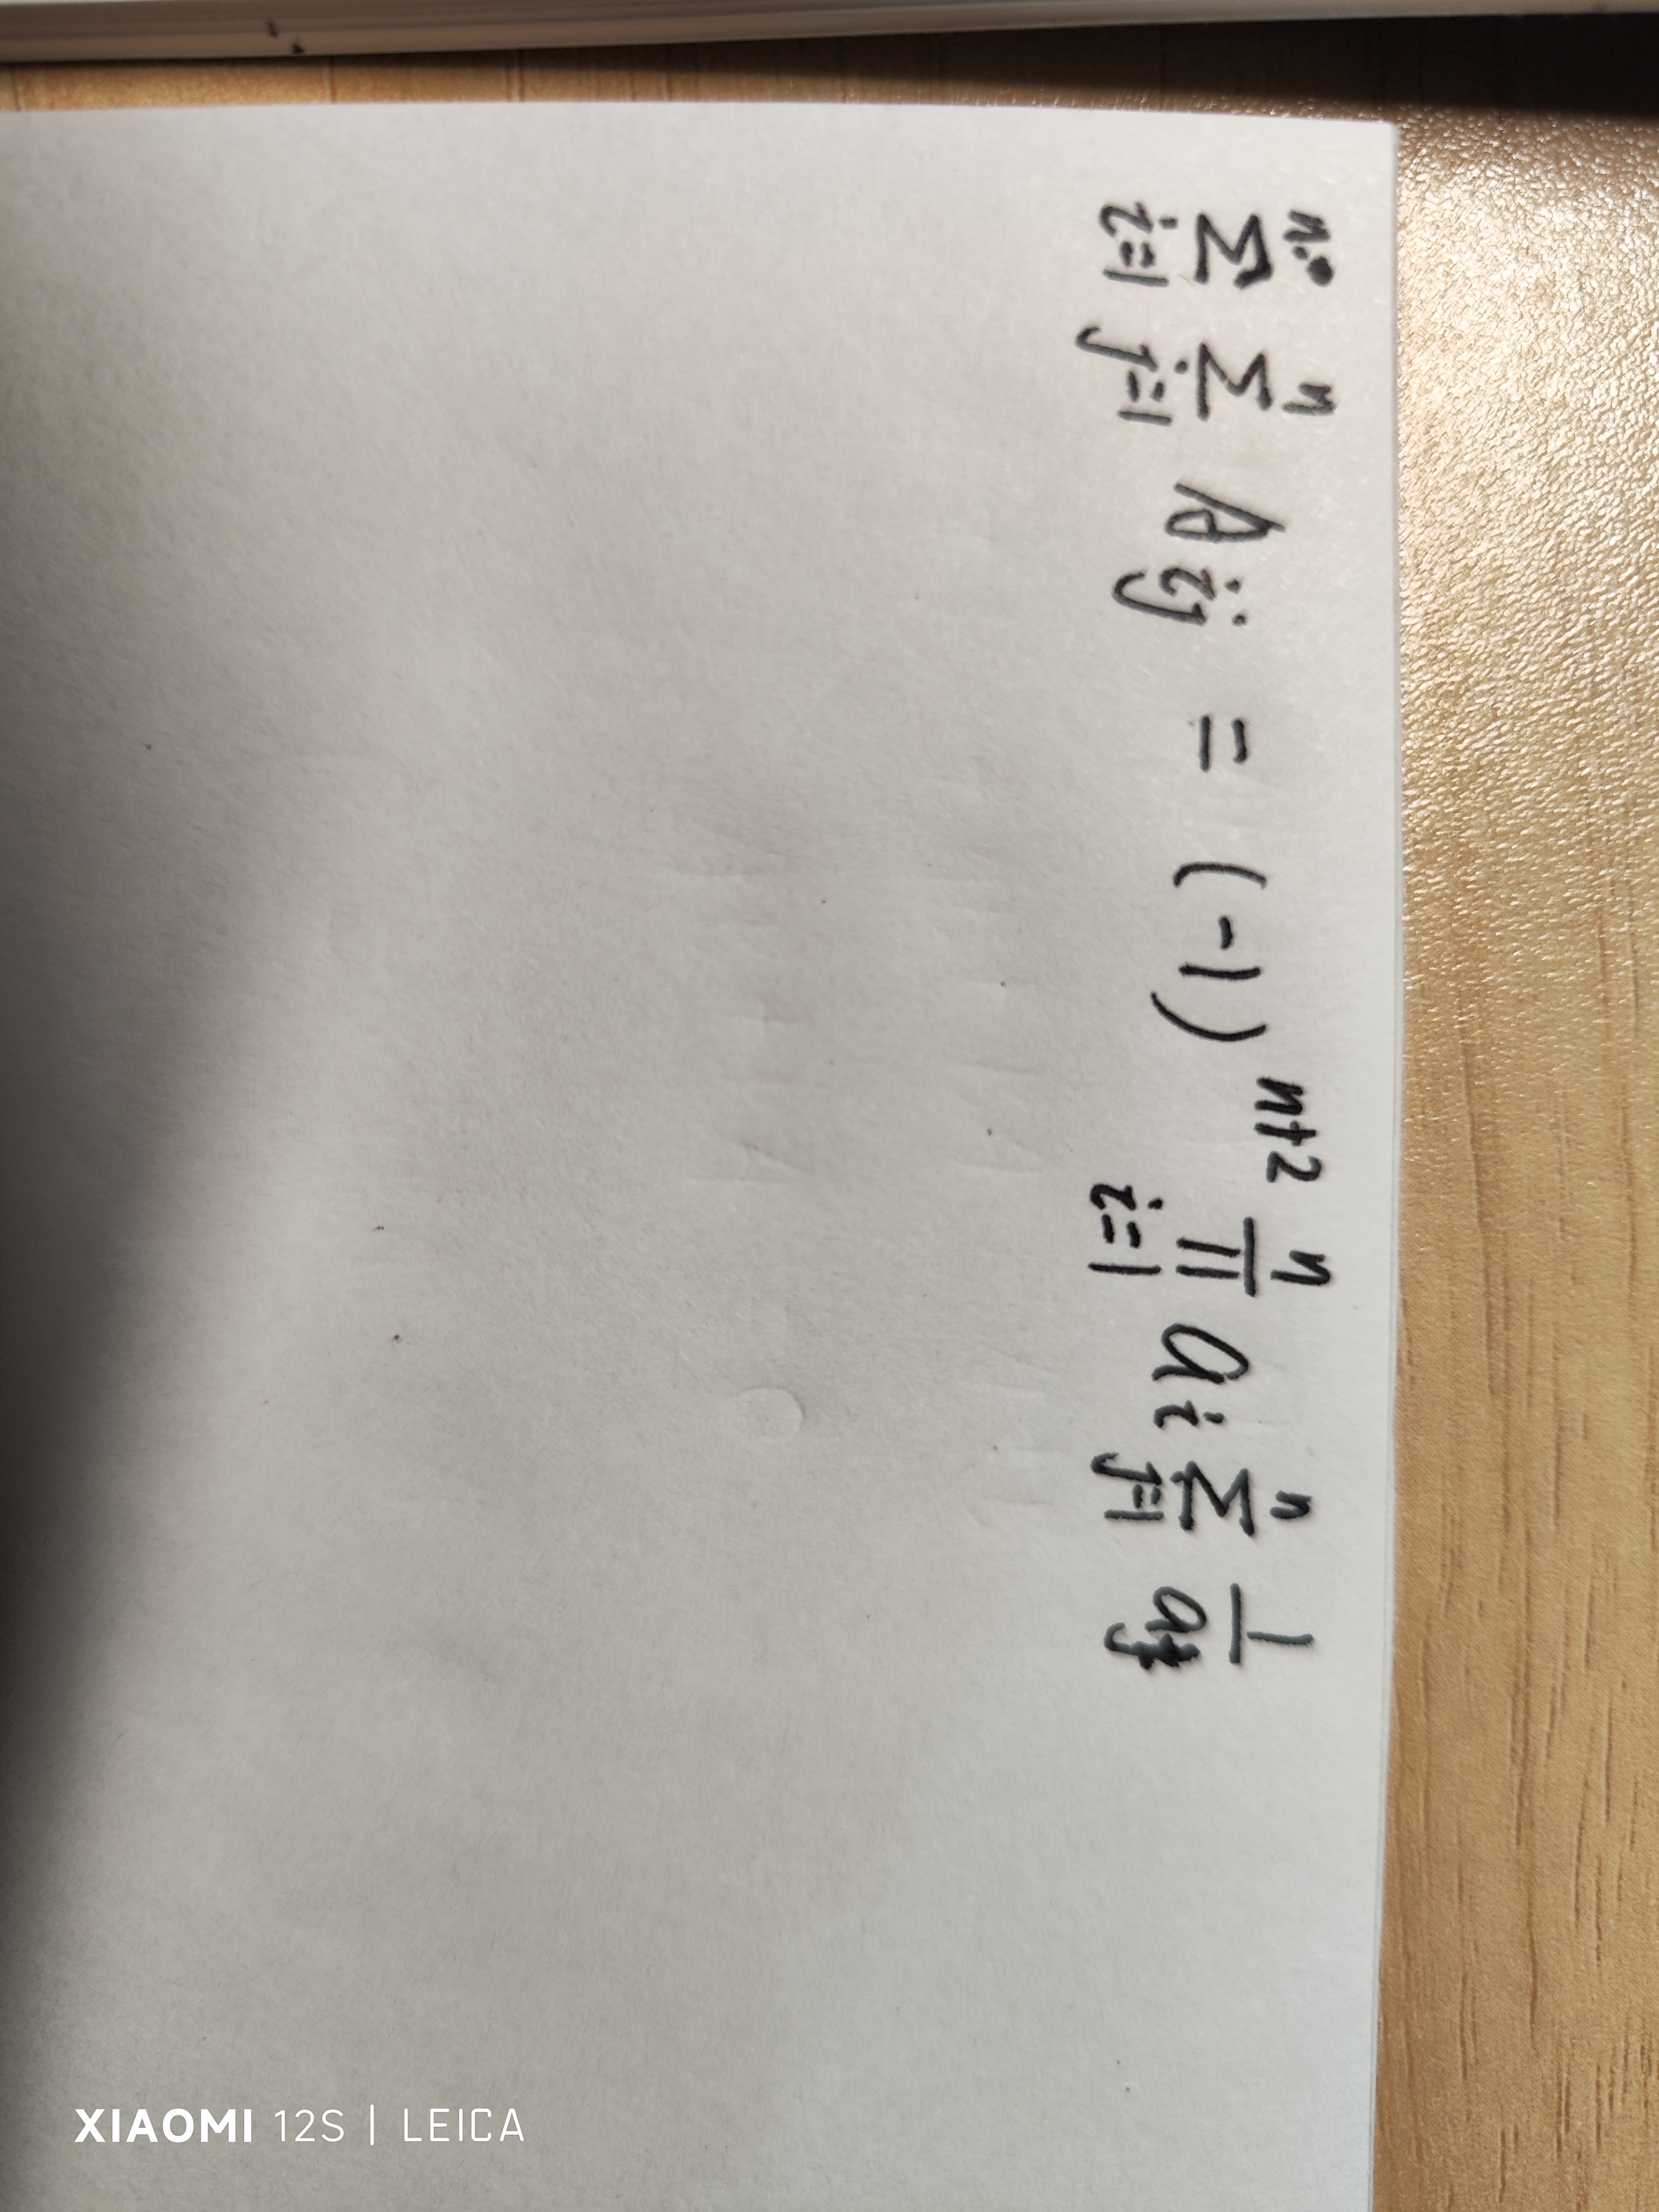 $\sum_{i=1}^{n} \sum_{j=1}^{n} A_{ij} = (-1)^{n+2} \prod_{i=1}^{n} a_i \sum_{j=1}^{n} \frac{1}{a_j}$
XIAOMI 12S | LEICA